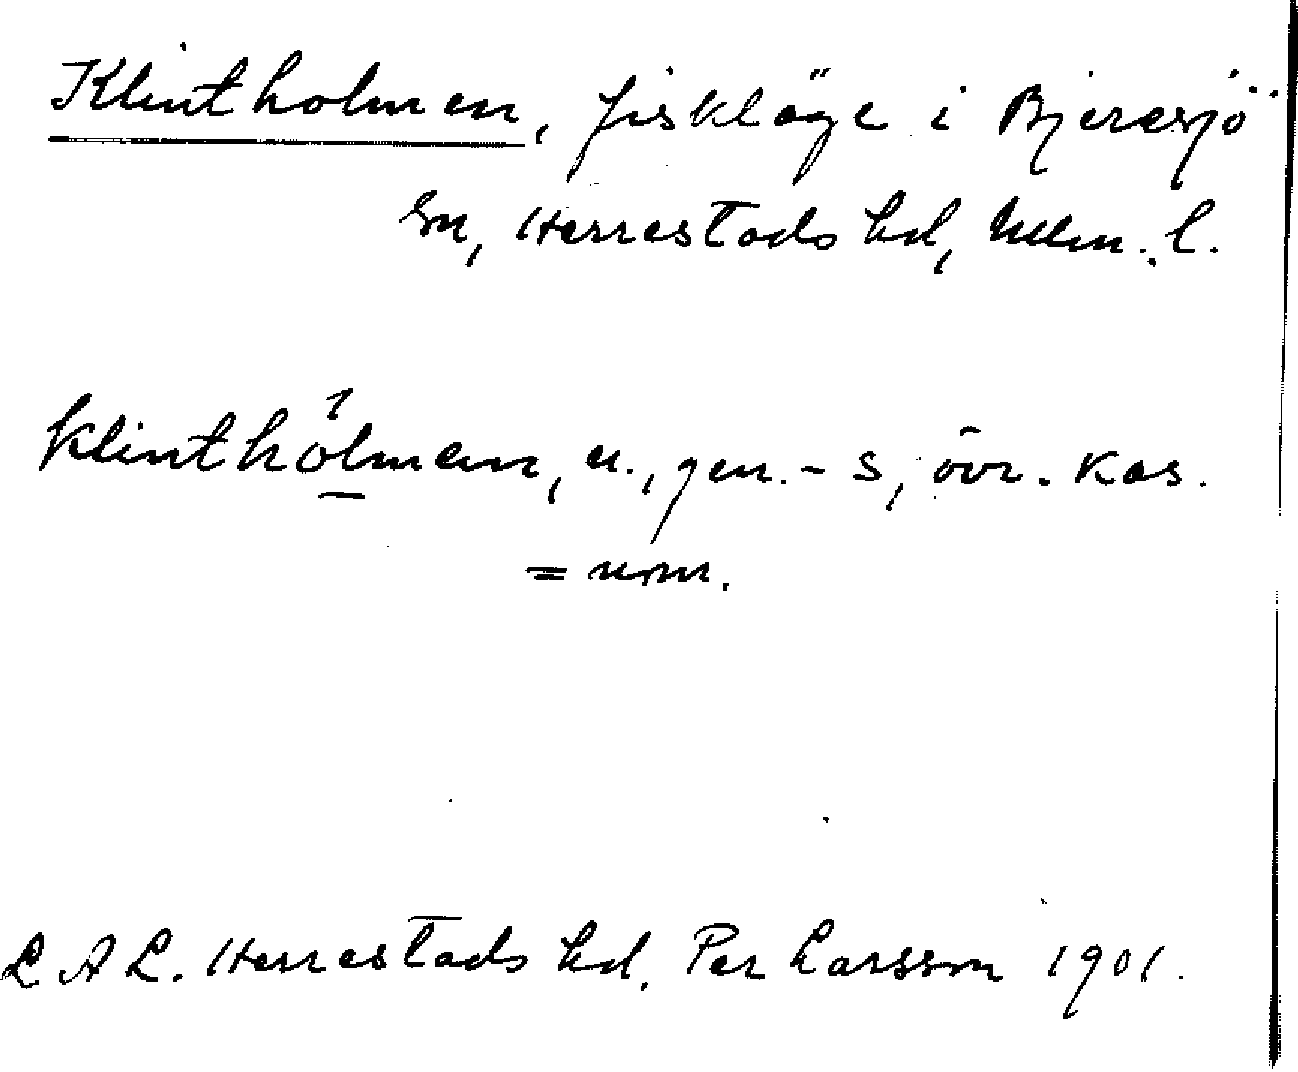 Klintholmen, fiskläge i Bjeresjö
sn, Herrestads hd, Mlm. l.
klinthólmen, n., gen. -s, övr. kas.
= nom.
L A L. Herrestads hd. Per Larsson 1901.